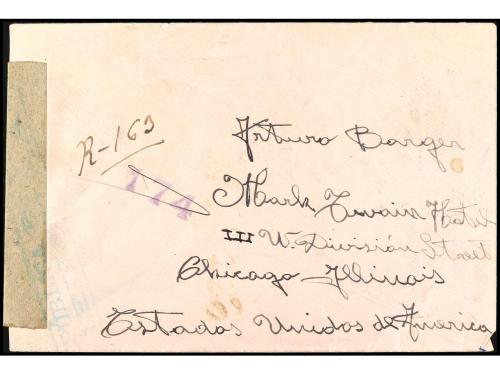 R-163
174
Arturo Barger
Mark Twain Hotel
111 W. División Street
Chicago Illinois
Estados Unidos de America